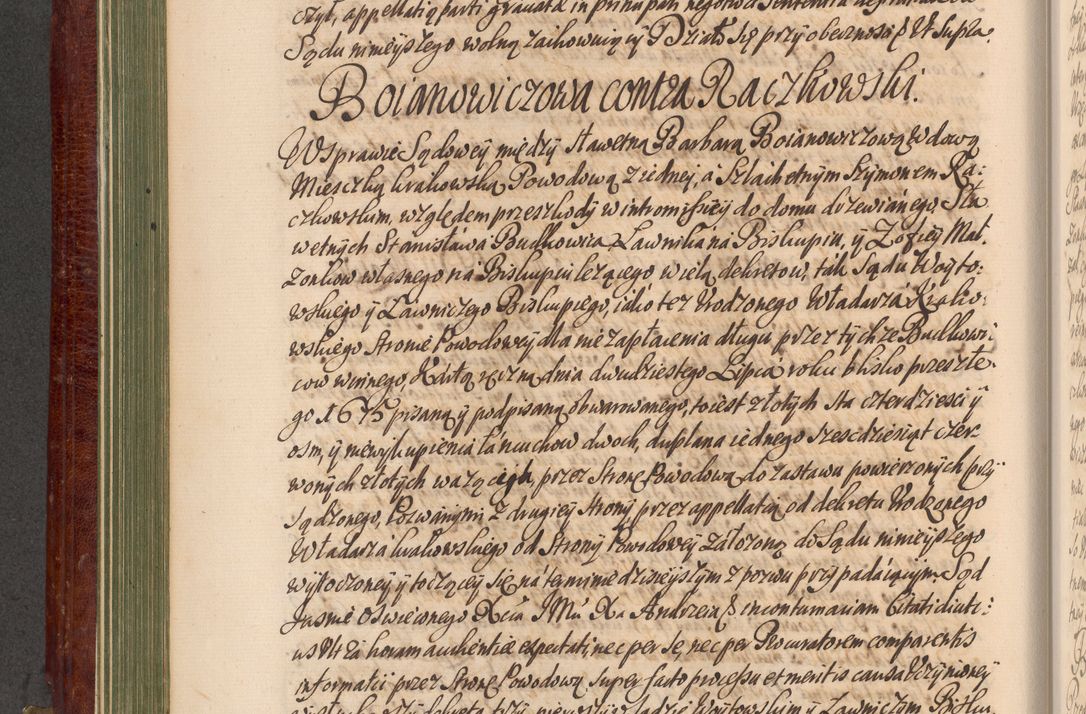 czył, appellatią parti gravatæ in principali negotio a sententia
Sądu ninieyszego wolną zachowuiący Działo się przy obecności ut Supra.
Boianowiczowa contra Raczkowski.
W sprawie Sądowey między Sławetną Barbarą Boianowiczową Wdową
Mieszczką krakowską Powodową z iedney, a Szlachetnym Szymonem Ra-
czkowskim, względem przeszkody w intromissiey do domu drzewianego, Sła
wetnych Stanisława Budkowica Ławnika na Biskupiu, y Zofiey Mał-
zonkow własnego na Biskupiu leżącego wielą dekretow, tak Sądu Woyto-
wskiego y Ławniczego Biskupiego, iako też Urodzonego Władarza Krako-
wskiego Stronie Powodowey dla nie zapłacenia długu przez tychże Budkowi
cow winnego, Kartą ręczną dnia dwudziestego Lipca roku blisko przeszłe-
go 1675 pisaną y podpisaną obwarowanego, to iest złotych sta czterdzieści y
osm, y niewykupienia łancuchow dwoch, duplana iednego sześcdziesiąt czer
wonych złotych ważących, przez Stronę Powodową do zastawu powierzonych przy
sądzonego, Pozwanym z drugiey strony przez appellatią od dekretu Urodzonego
Władarza krakowskiego od Strony Powodowey założoną do Sądu ninieyszego
wytoczoney y toczącey się na terminie dzisieyszym z pozwu przypadaiącym. Sąd
Jasnie Oswieconego Xcia JMci Xa Andrzeia in contumatiam Citati
us 4ta horam authentice expectati, nec per se, nec per Procuratorem comparentis
informatii przez Stronę Powodową super facto processu et meritis causæ uczynioney